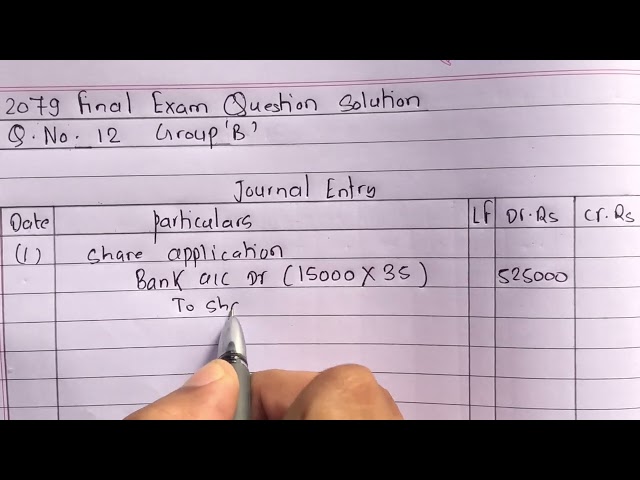 2079 Final Exam Question Solution
Q. No. 12 Group 'B'
Journal Entry
Date particulars LF Dr. Rs Cr. Rs
(1) Share application
Bank a/c Dr (15000 X 35) 525000
To Sh